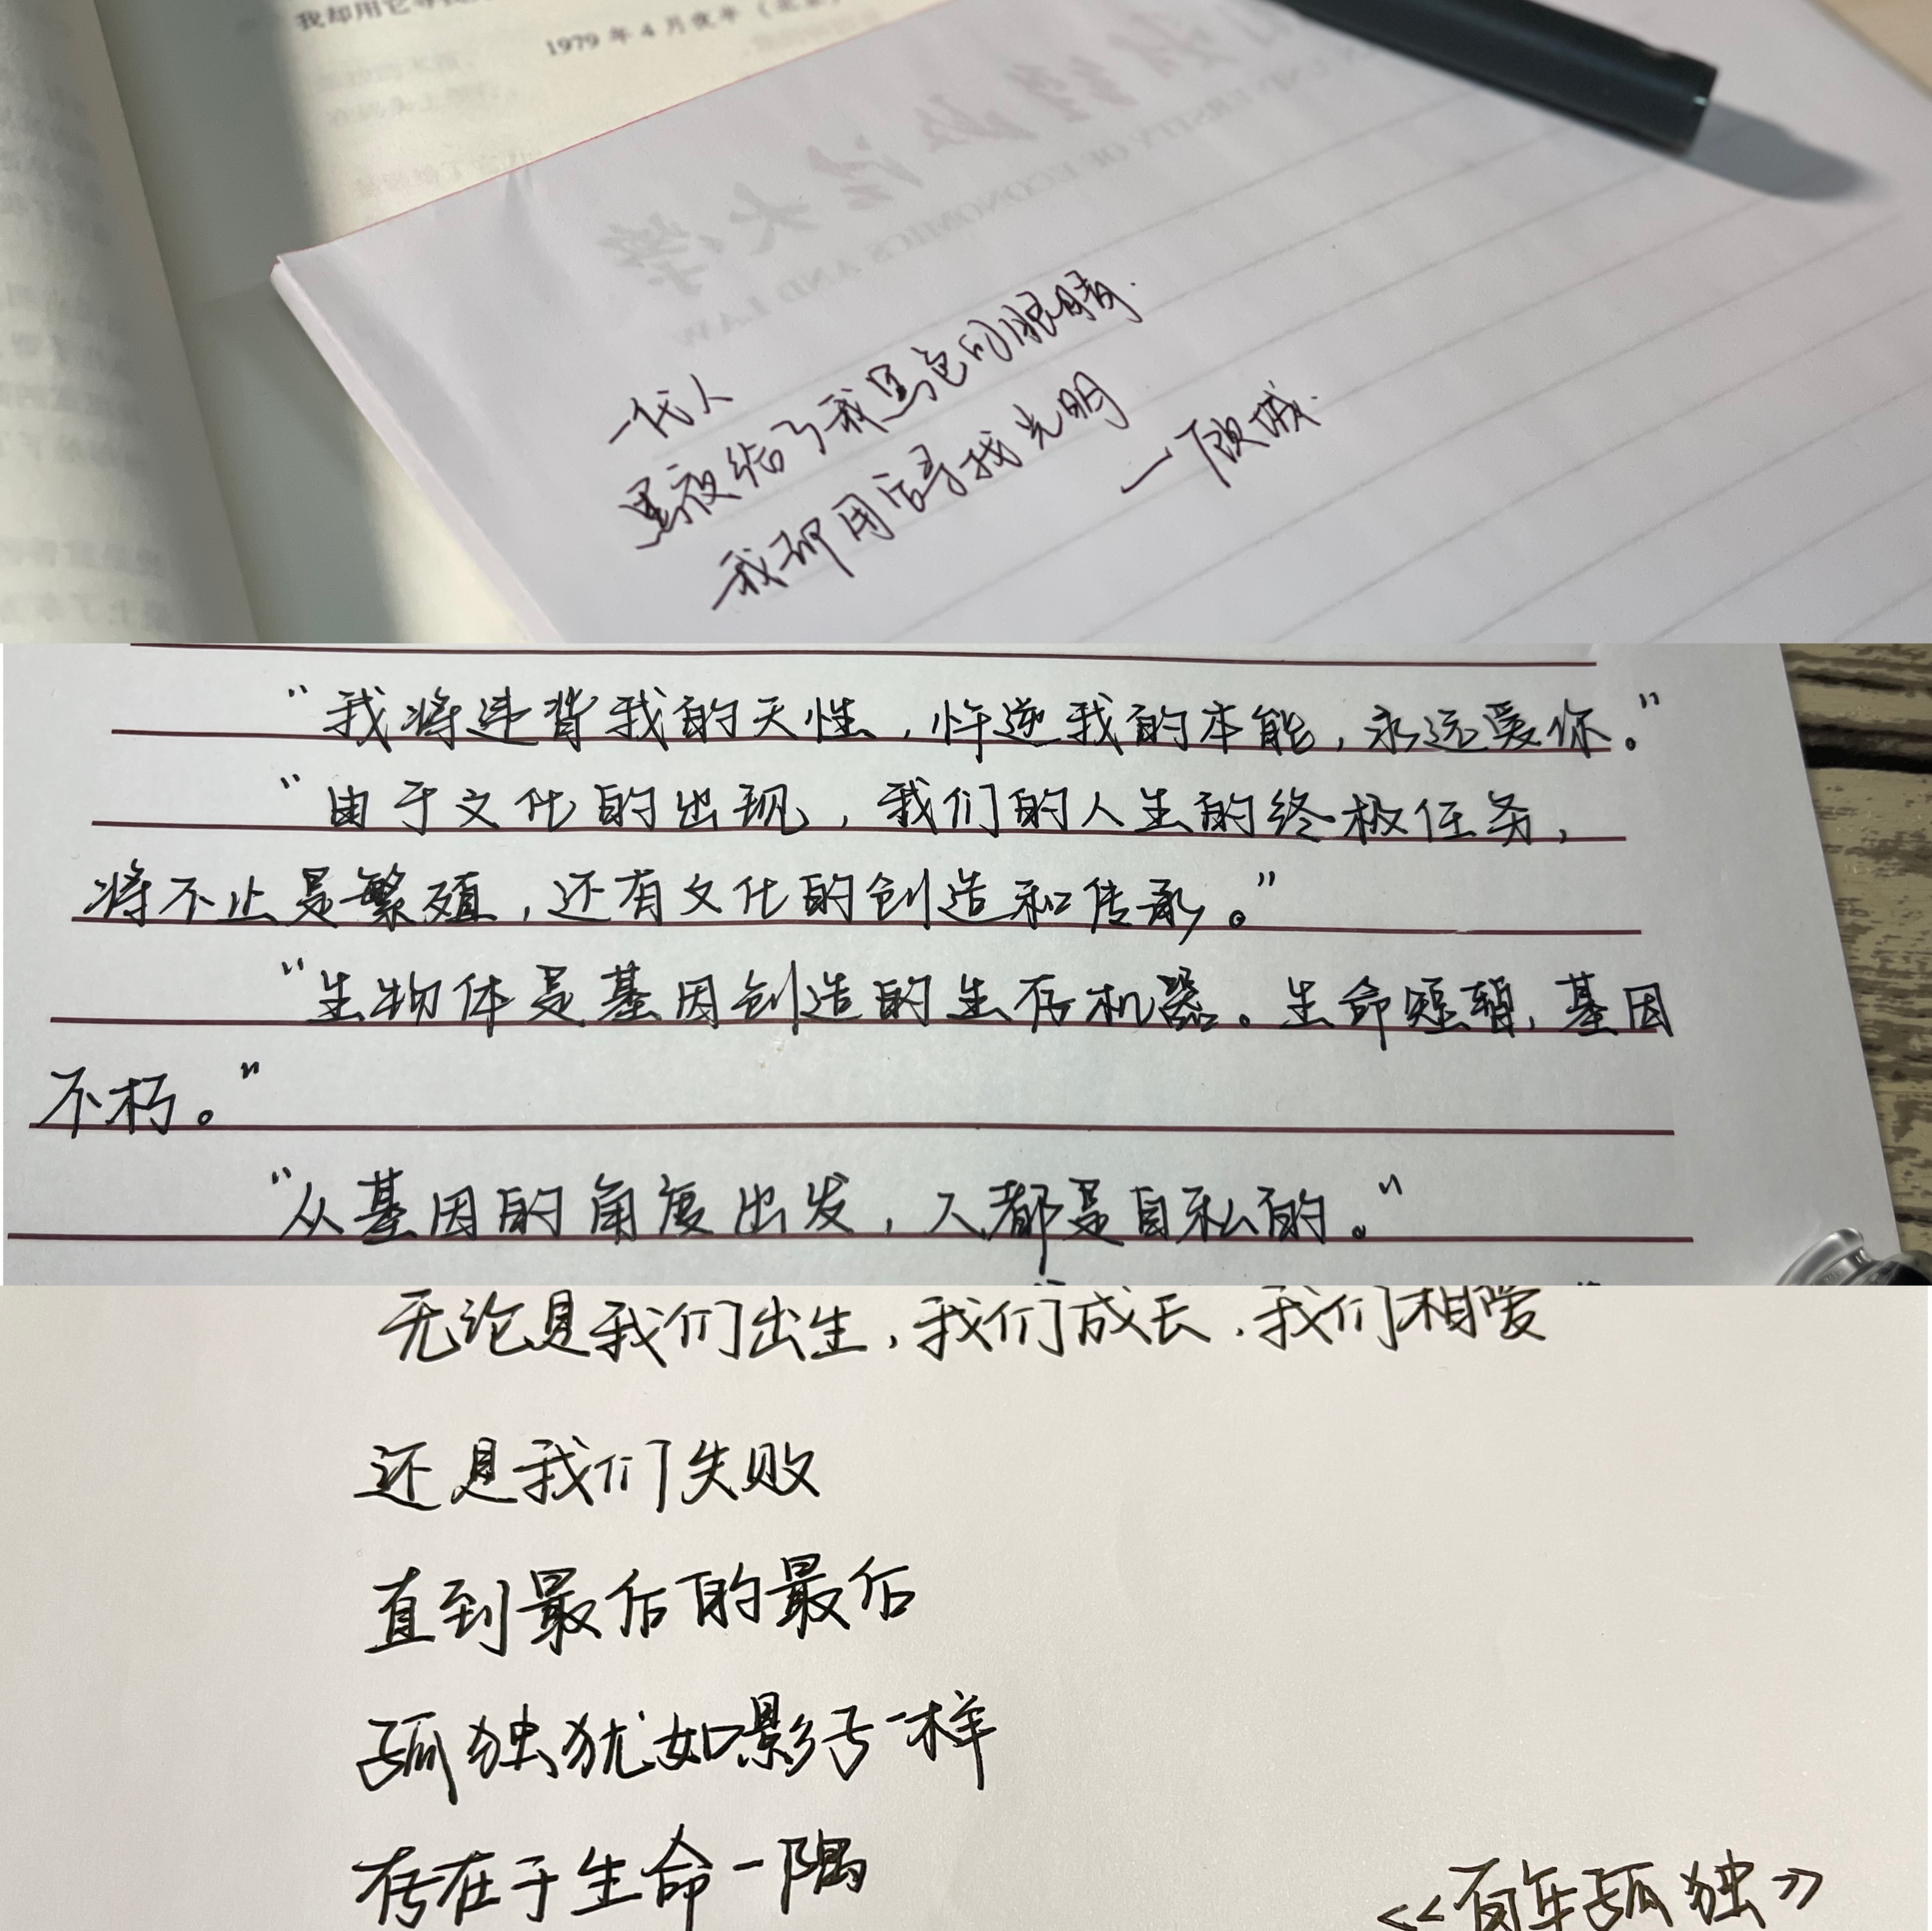 我却用它寻找
1979年4月夜半（北京）
UNIVERSITY OF ECONOMICS AND LAW
一代人
黑夜给了我黑色的眼睛.
我却用它寻找光明
—顾城.
“我将违背我的天性，忤逆我的本能，永远爱你。”
“由于文化的出现，我们的人生的终极任务，
将不止是繁殖，还有文化的创造和传承。”
“生物体是基因创造的生存机器。生命短暂，基因
不朽。”
“从基因的角度出发，人都是自私的。”
无论是我们出生，我们成长，我们相爱
还是我们失败
直到最后的最后
孤独犹如影子一样
存在于生命一隅
<<百年孤独>>